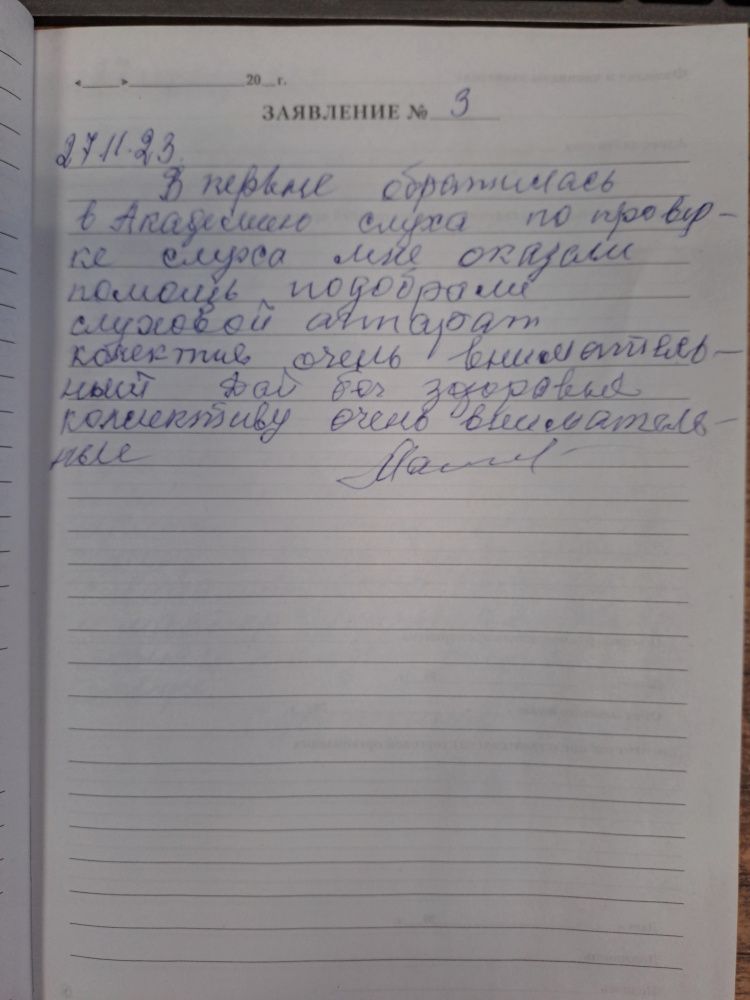 «____»______________20__г.
ЗАЯВЛЕНИЕ № 3
27.11.23.
В первые обратилась
в Академию слуха по провер-
ке слуха мне оказали
помощь, подобрали
слуховой аппарат
колектив очень вниматель-
ный Дай бог здоровья
коллективу очень вниматель-
ные